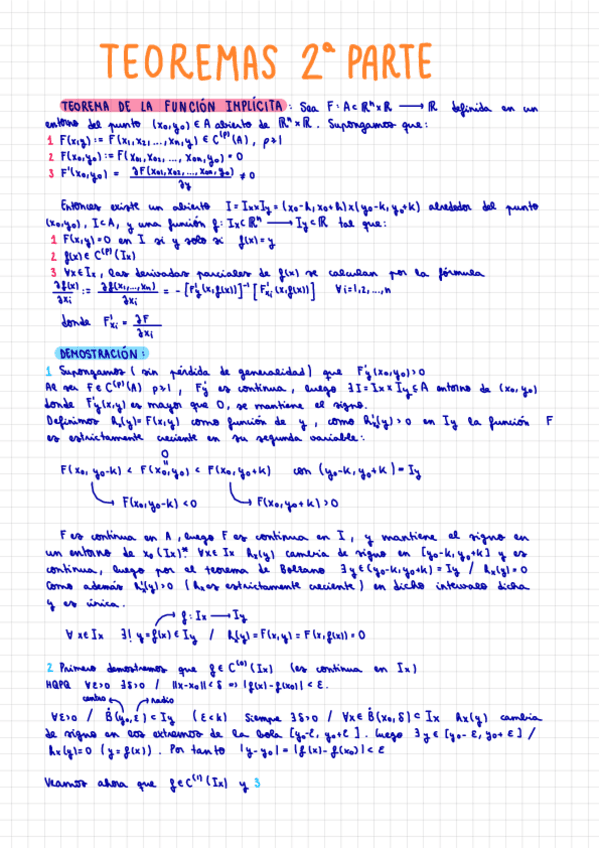 TEOREMAS 2ª PARTE
TEOREMA DE LA FUNCIÓN IMPLÍCITA: Sea F: A⊂ℝⁿxℝ ⟶ ℝ definida en un
entorno del punto (x₀,y₀) ∈ A abierto de ℝⁿxℝ. Supongamos que:
1 F(x,y) := F(x₁,x₂,...,xₙ,y) ∈ C^(p)(A), p≥1
2 F(x₀,y₀) := F(x₀₁,x₀₂,...,x₀ₙ,y₀) = 0
3 F'(x₀,y₀) = ∂F(x₀₁,x₀₂,...,x₀ₙ,y₀)/∂y ≠ 0
Entonces existe un abierto I = Ix×Iy = (x₀-h,x₀+h)×(y₀-k,y₀+k) alrededor del punto
(x₀,y₀), I⊂A, y una función f: Ix⊂ℝⁿ ⟶ Iy⊂ℝ tal que:
1 F(x,y)=0 en I si y solo si f(x)=y
2 f(x) ∈ C^(p)(Ix)
3 ∀x∈Ix, las derivadas parciales de f(x) se calculan por la fórmula
∂f(x)/∂xi := ∂f(x₁,...,xₙ)/∂xi = -[F'y(x,f(x))]⁻¹[F'xi(x,f(x))] ∀i=1,2,...,n
donde F'xi = ∂F/∂xi
DEMOSTRACIÓN:
1 Supongamos (sin pérdida de generalidad) que F'y(x₀,y₀)>0
Al ser F∈C^(p)(A) p≥1, F'y es continua, luego ∃ I=Ix×Iy⊆A entorno de (x₀,y₀)
donde F'y(x,y) es mayor que 0, se mantiene el signo.
Definimos hx(y)=F(x,y) como función de y, como h'x(y)>0 en Iy la función F
es estrictamente creciente en su segunda variable:
0
=
F(x₀,y₀-k) < F(x₀,y₀) < F(x₀,y₀+k) con (y₀-k,y₀+k)=Iy
F(x₀,y₀-k)<0 F(x₀,y₀+k)>0
F es continua en A, luego F es continua en I, y mantiene el signo en
un entorno de x₀ (Ix)* ∀x∈Ix hx(y) cambia de signo en [y₀-k,y₀+k] y es
continua, luego por el teorema de Bolzano ∃y∈(y₀-k,y₀+k)=Iy / hx(y)=0
Como además h'x(y)>0 (hx es estrictamente creciente) en dicho intervalo dicha
y es única.
f: Ix ⟶ Iy
∀x∈Ix ∃! y=f(x)∈Iy / hx(y)=F(x,y)=F(x,f(x))=0
2 Primero demostremos que f∈C^(0)(Ix) (es continua en Ix)
HQPQ ∀ε>0 ∃δ>0 / ||x-x₀||<δ ⇒ |f(x)-f(x₀)|<ε.
centro radio
∀ε>0 / B(y₀,ε)⊂Iy (ε<k) Siempre ∃δ>0 / ∀x∈B(x₀,δ)⊂Ix hx(y) cambia
de signo en los extremos de la bola [y₀-ε,y₀+ε]. Luego ∃y∈[y₀-ε,y₀+ε] /
hx(y)=0 (y=f(x)). Por tanto |y-y₀|=|f(x)-f(x₀)|<ε
Veamos ahora que f∈C^(1)(Ix) y 3